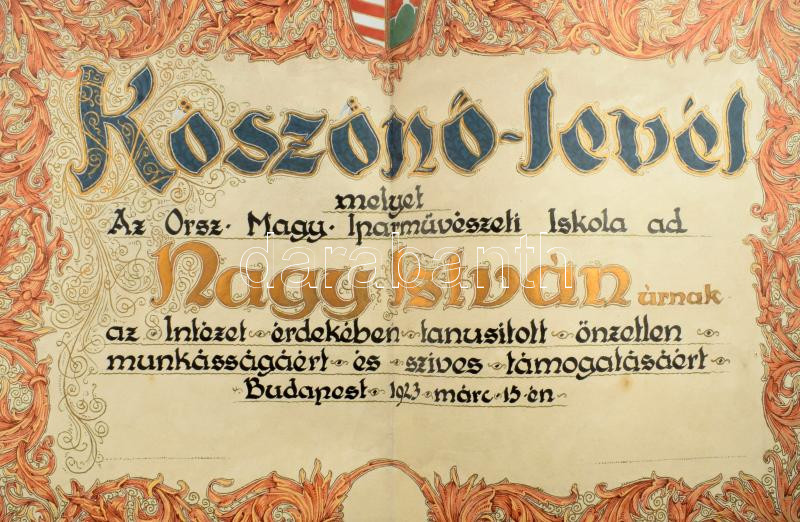 Köszönő-levél
melyet
Az Orsz. Magy. Iparművészeti Iskola ad
Nagy István úrnak
az Intézet érdekében tanusitott önzetlen
munkásságáért és szives támogatásáért
Budapest 1923 márc. 15-én
darabanth